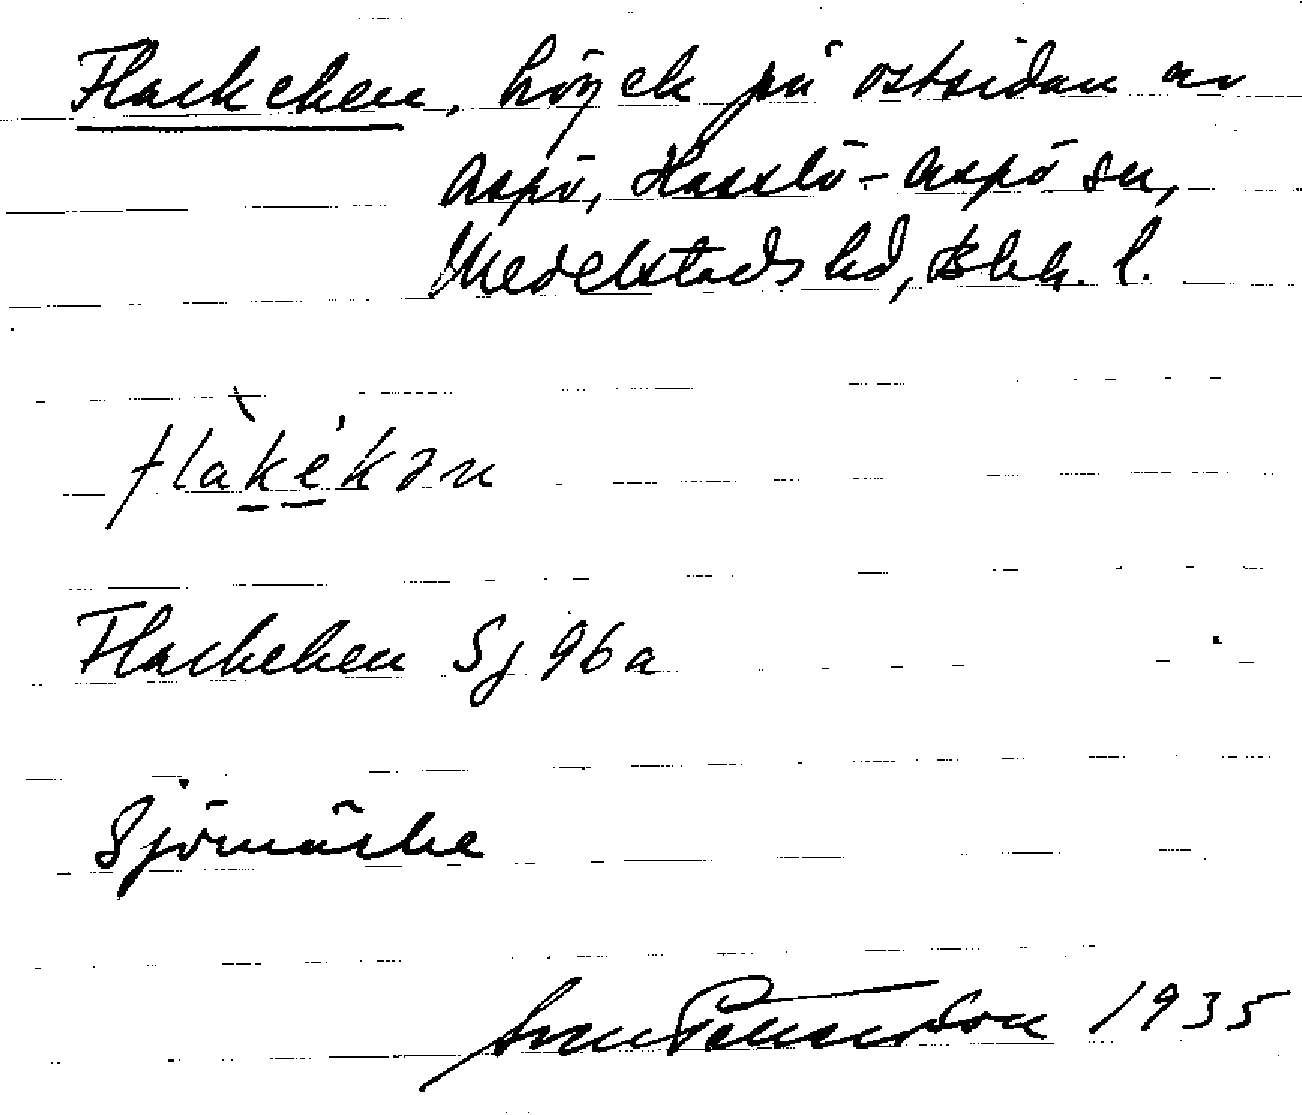 Flackeken, högek på ostsidan av
Aspö, Hasslö-Aspö sn,
Medelstads hd, Blek. l.
flàkékən
Flackeken Sj 96a
Sjömärke
Sven Peterson 1935